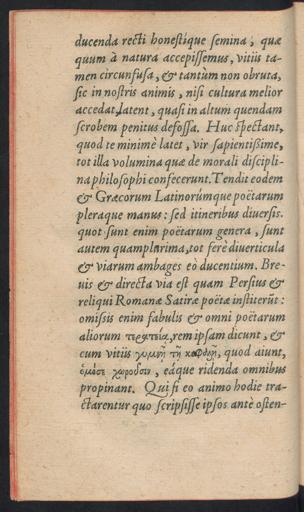 ducenda recti honestíque semina, quæ
quum à natura accepissemus, vitiis ta-
men circunfusa, & tantùm non obruta,
sic in nostris animis, nisi cultura melior
accedat, latent, quasi in altum quendam
scrobem penitus defossa. Huc spectant,
quod te minimè latet, vir sapientissime,
tot illa volumina quæ de morali discipli-
na philosophi confecerunt. Tendit eodem
& Græcorum Latinorúmque poëtarum
pleraque manus: sed itineribus diuersis.
quot sunt enim poëtarum genera, sunt
autem quamplurima, tot ferè diuerticula
& viarum ambages eò ducentium. Bre-
uis & directa via est quam Persius &
reliqui Romanæ Satiræ poëtæ institerūt:
omissis enim fabulis & omni poëtarum
aliorum τερατεία, rem ipsam dicunt, &
cum vitiis γυμνῇ τῇ κεφαλῇ, quod aiunt,
ὁμόσε χωροῦσιν, eáque ridenda omnibus
propinant. Qui si eo animo hodie tra-
ctarentur quo scripsisse ipsos antè osten-